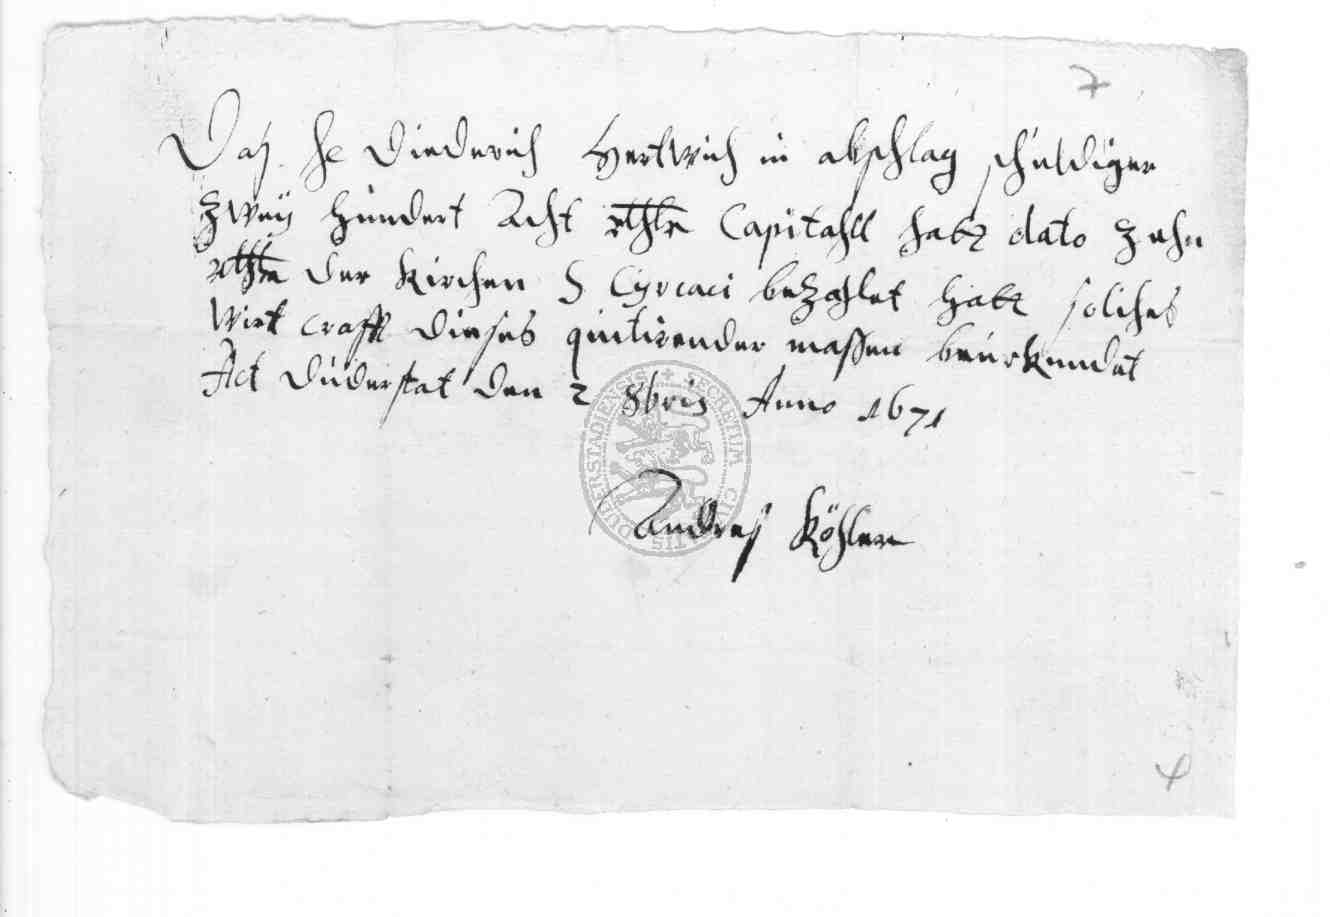 7
Daß H Diederich Hertwich in abschlag schuldiger
Zweÿ hundert Acht rthlr Capitahll habe dato Zehn
rthlr der Kirchen S Cyrcaci beZahlet habe solches
Wirt crafft dieses quitirender massen beurkundet
Act Duderstat den 2 8bris Anno 1671
SECRETUM DUDERSTADIENSIS
Andreß Köhler